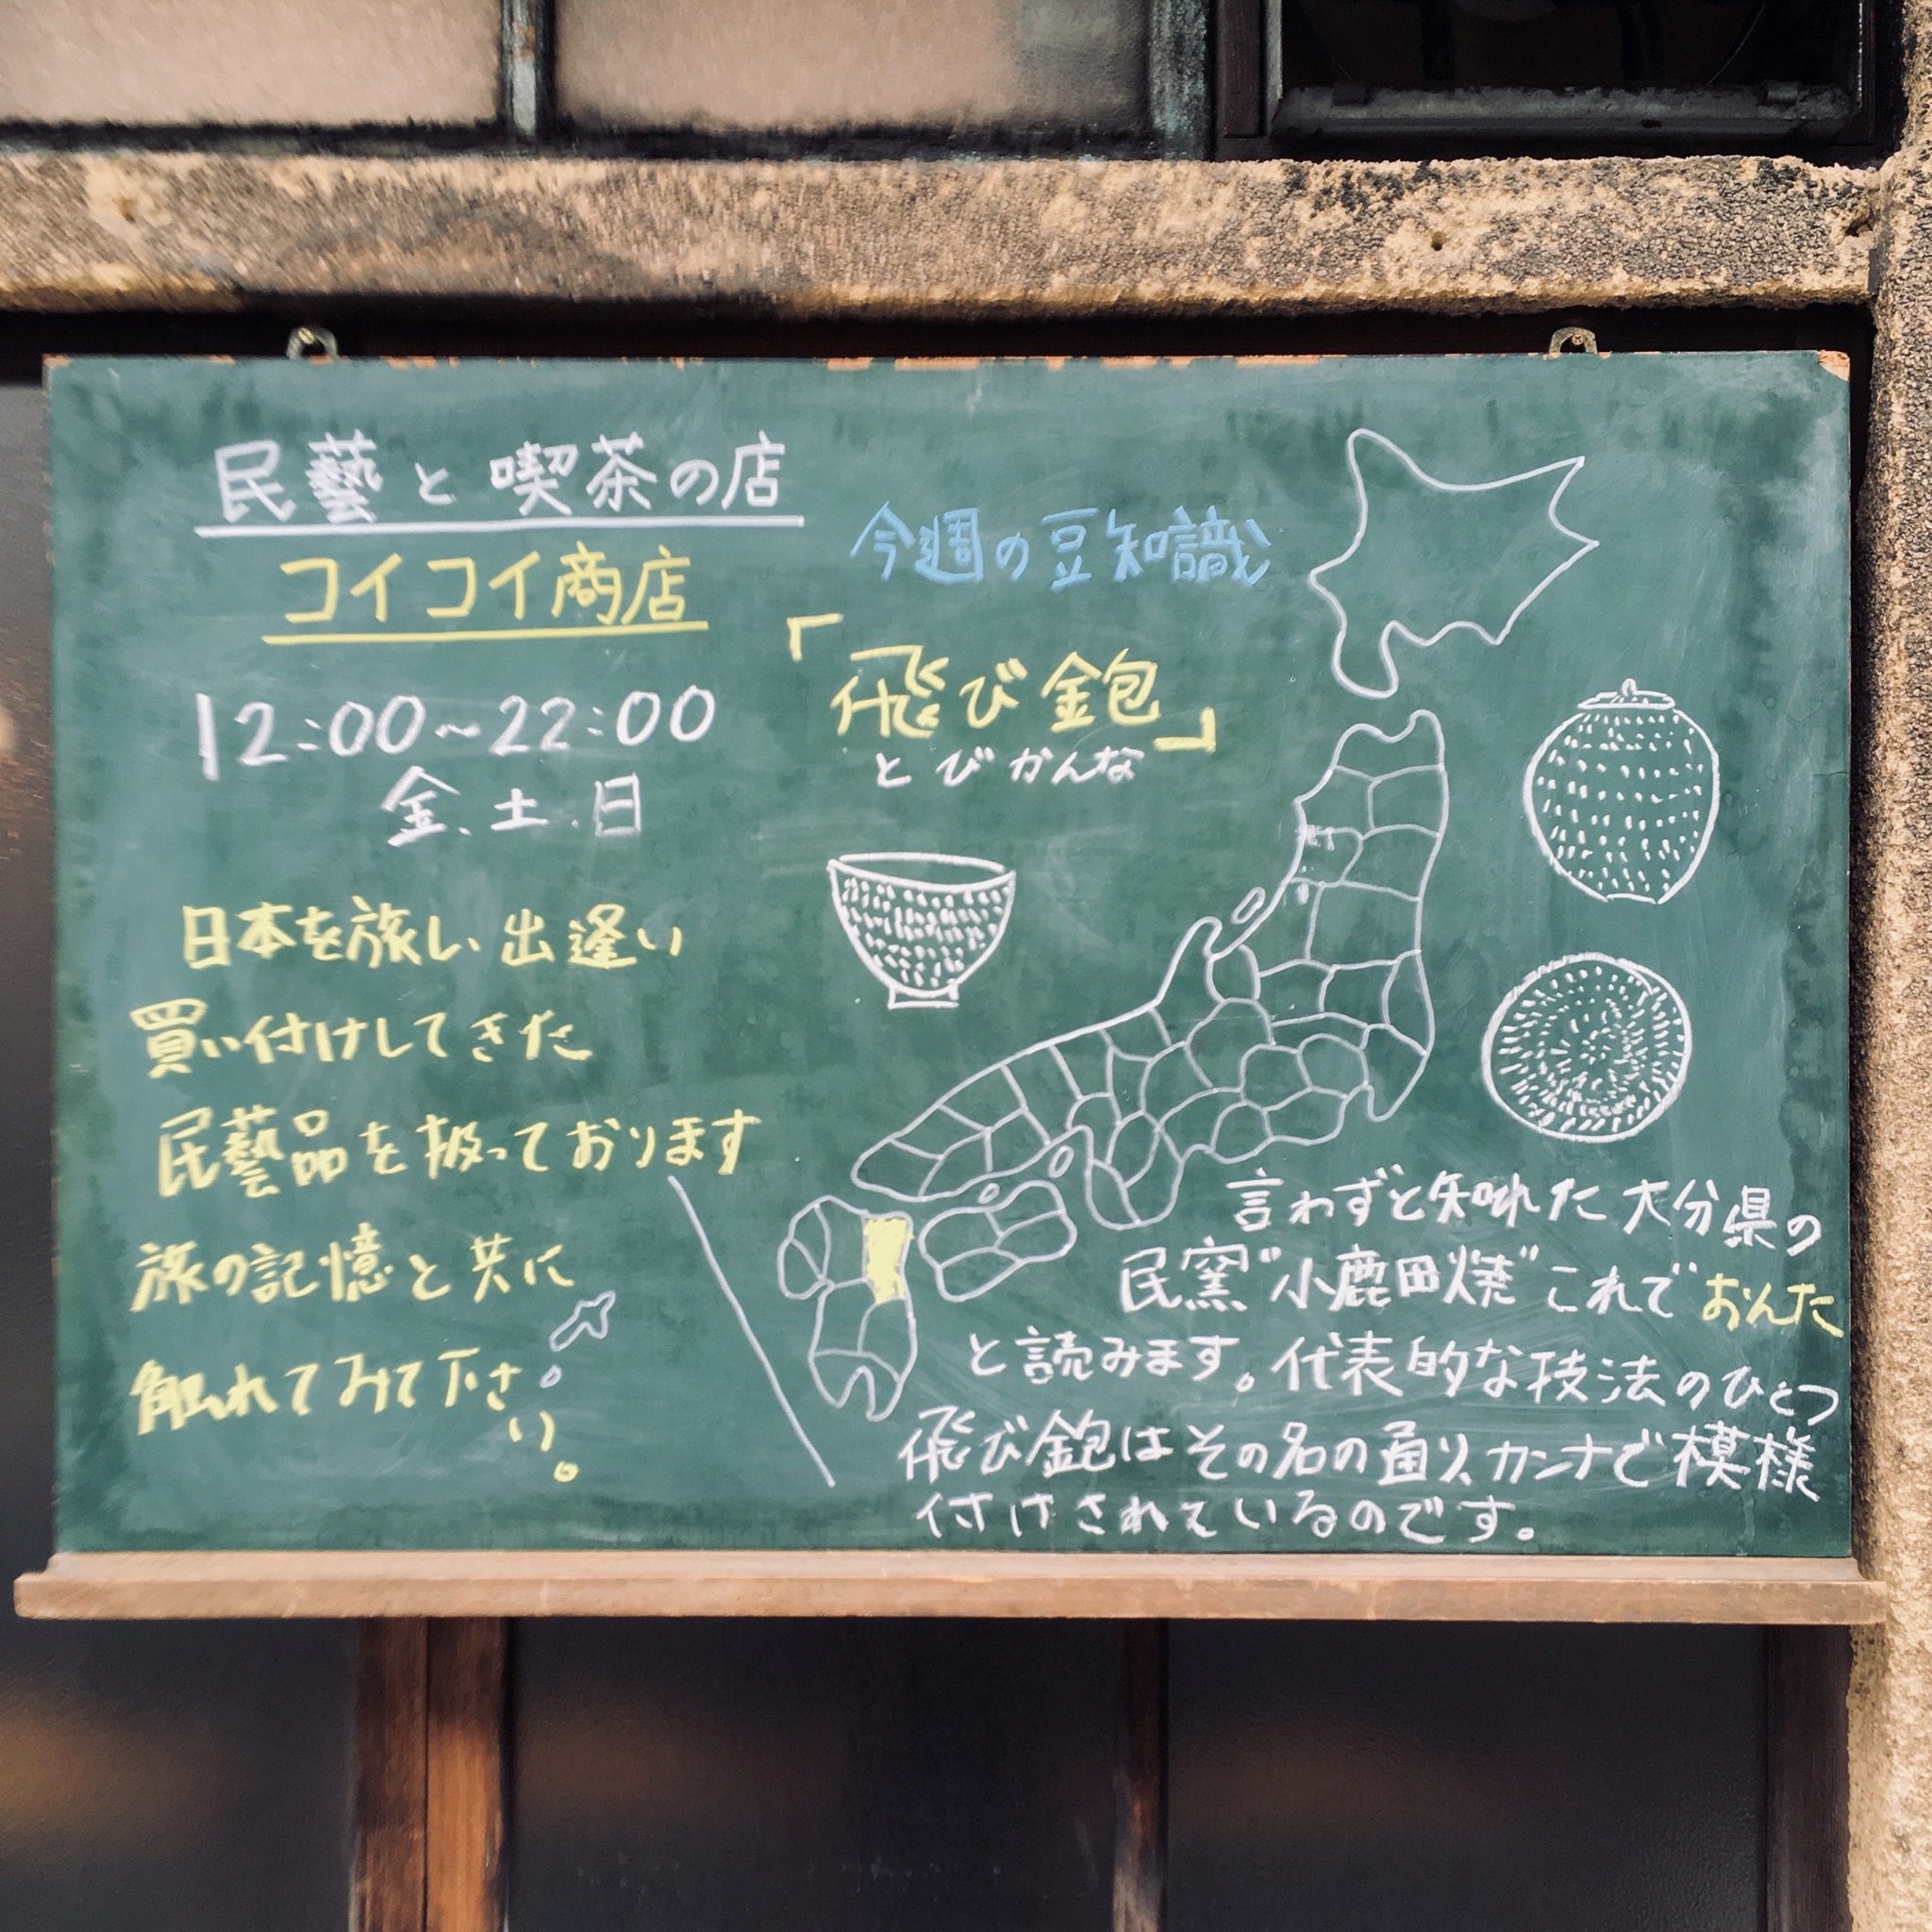 民藝と喫茶の店
コイコイ商店
12:00〜22:00
金.土.日
日本を旅し出逢い
買い付けしてきた
民藝品を扱っております
旅の記憶と共に
触れてみて下さい。
今週の豆知識
「飛び鉋」
とびかんな
言わずと知れた大分県の
民窯"小鹿田焼"これでおんた
と読みます。代表的な技法のひとつ
飛び鉋はその名の通り、カンナで模様
付けされているのです。